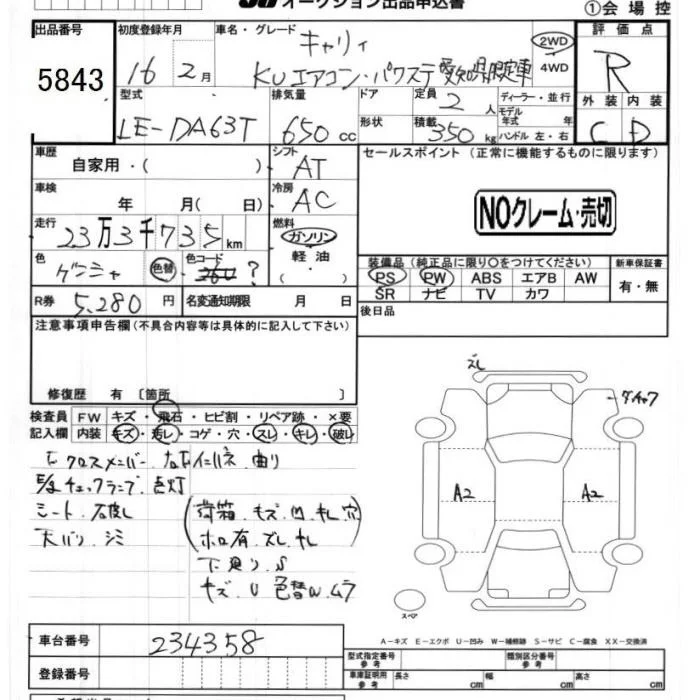 オークション出品申込書
①会場控
出品番号 初度登録年月 車名・グレード 評価点
5843 16 2月 キャリィ 2WD 4WD R
KUエアコン・パワステ 愛知県限定車
型式 排気量 ドア 定員 2人 ディーラー・並行 外装 内装
LE-DA63T 650cc 形状 積載 350kg モデル年式 年 ハンドル 左・右 C D
車歴 自家用・( ) シフト AT セールスポイント (正常に機能するものに限ります)
車検 年 月( 日) 冷房 AC
NOクレーム・売切
走行 23万3千735km 燃料 ガソリン 軽油 ・( )
色 ゲンシャ 色替 色コード 26U ?
装備品 (純正品に限り○をつけてください) 新車保証書
PS PW ABS エアB AW 有・無
SR ナビ TV カワ
R券 5,280円 名変通知期限 月 日 後日品
注意事項申告欄(不具合内容等は具体的に記入して下さい)
修復歴 有 〔箇所 〕
検査員 FW キズ・飛石・ヒビ割・リペア跡・×要
記入欄 内装 キズ・汚レ・コゲ・穴・スレ・キレ・破レ
Fクロスメンバー 曲り
チェックランプ 点灯
シート 破レ
天バリ シミ
荷箱 キズ 凹 キレ 穴
ホロ有 ズレ キレ
下廻り S
キズ U 色替W ムラ
ズレ
A2 A2
スペア
A-キズ E-エクボ U-凹み W-補修跡 S-サビ C-腐食 XX-交換済
車台番号 234358
型式指定番号 参考 類別区分番号 参考
登録番号 車庫証明用 参考 長さ cm 幅 cm 高さ cm